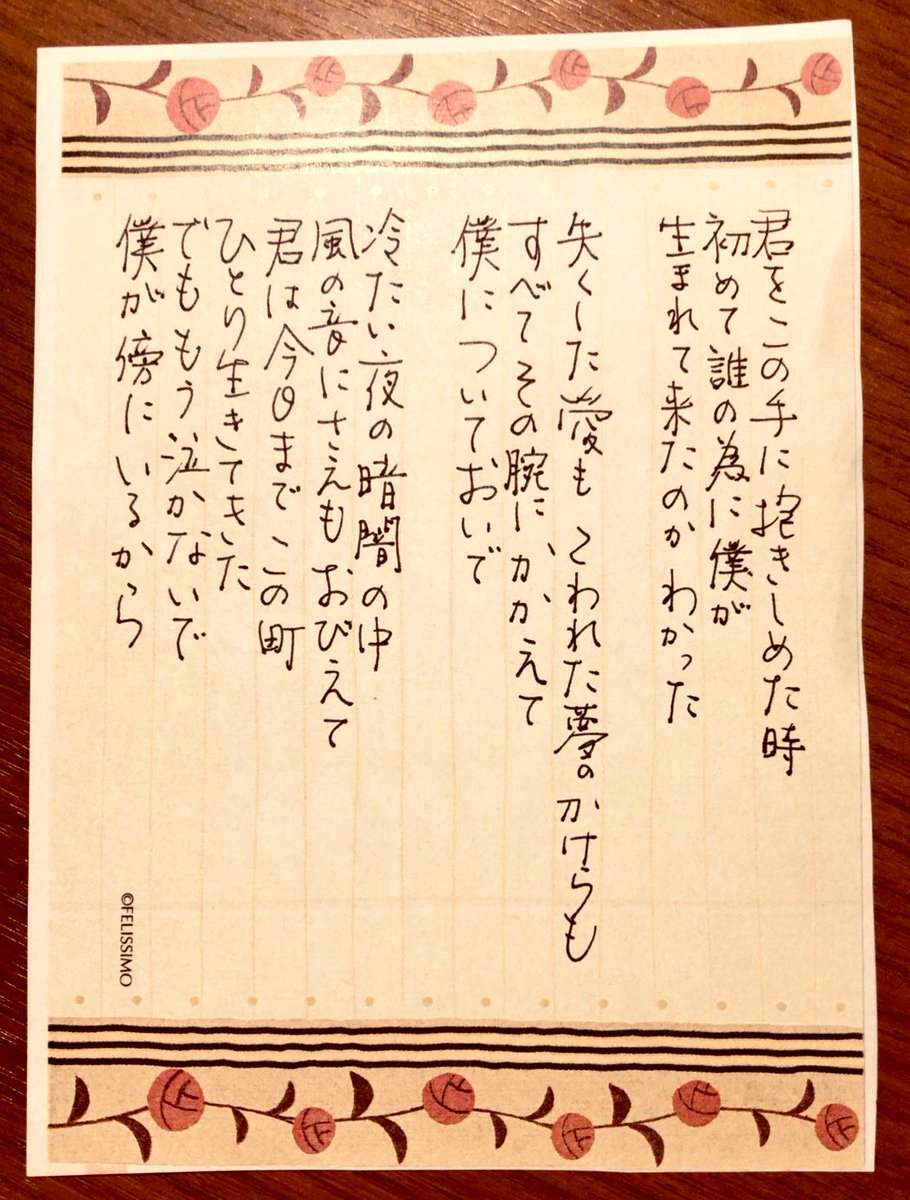 君をこの手に抱きしめた時
初めて誰の為に僕が
生まれて来たのか わかった
失くした愛も こわれた夢のかけらも
すべて その腕に かかえて
僕に ついて おいで
冷たい夜の暗闇の中
風の音にさえも おびえて
君は今日まで この町
ひとり生きてきた
でももう泣かないで
僕が傍に いるから
©FELISSIMO